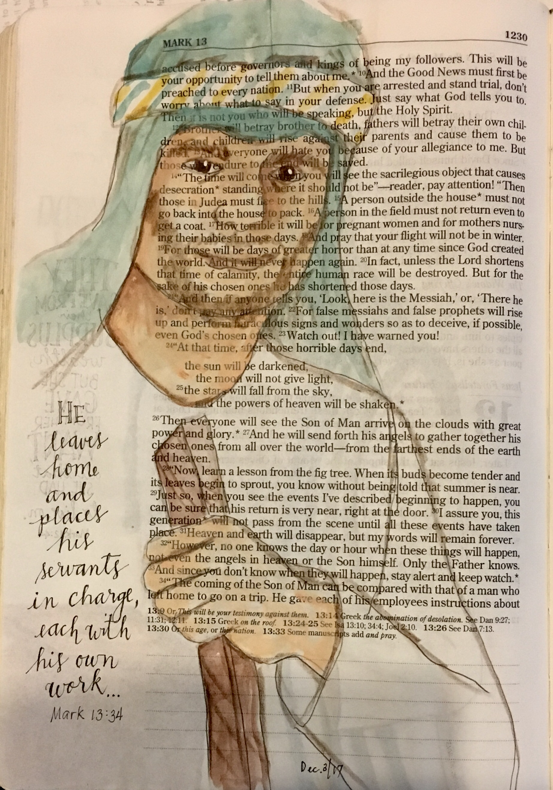 MARK 13
1230
accused before governors and kings of being my followers. This will be
your opportunity to tell them about me.* ¹⁰And the Good News must first be
preached to every nation. ¹¹But when you are arrested and stand trial, don't
worry about what to say in your defense. Just say what God tells you to.
Then it is not you who will be speaking, but the Holy Spirit.
¹²"Brother will betray brother to death, fathers will betray their own chil-
dren, and children will rise against their parents and cause them to be
killed. everyone will hate you because of your allegiance to me. But
those who endure to the end will be saved.
¹⁴"The time will come when you will see the sacrilegious object that causes
desecration* standing where it should not be"—reader, pay attention! "Then
those in Judea must flee to the hills. ¹⁵A person outside the house* must not
go back into the house to pack. ¹⁶A person in the field must not return even to
get a coat. ¹⁷How terrible it will be for pregnant women and for mothers nurs-
ing their babies in those days. ¹⁸And pray that your flight will not be in winter.
¹⁹For those will be days of greater horror than at any time since God created
the world. And it will never happen again. ²⁰In fact, unless the Lord shortens
that time of calamity, the entire human race will be destroyed. But for the
sake of his chosen ones he has shortened those days.
²¹"And then if anyone tells you, 'Look, here is the Messiah,' or, 'There he
is,' don't pay any attention. ²²For false messiahs and false prophets will rise
up and perform miraculous signs and wonders so as to deceive, if possible,
even God's chosen ones. ²³Watch out! I have warned you!
²⁴"At that time, after those horrible days end,
the sun will be darkened,
the moon will not give light,
²⁵the stars will fall from the sky,
and the powers of heaven will be shaken.*
²⁶Then everyone will see the Son of Man arrive on the clouds with great
power and glory.* ²⁷And he will send forth his angels to gather together his
chosen ones from all over the world—from the farthest ends of the earth
and heaven.
²⁸"Now, learn a lesson from the fig tree. When its buds become tender and
its leaves begin to sprout, you know without being told that summer is near.
²⁹Just so, when you see the events I've described beginning to happen, you
can be sure that his return is very near, right at the door. ³⁰I assure you, this
generation* will not pass from the scene until all these events have taken
place. ³¹Heaven and earth will disappear, but my words will remain forever.
³²"However, no one knows the day or hour when these things will happen,
not even the angels in heaven or the Son himself. Only the Father knows.
³³And since you don't know when they will happen, stay alert and keep watch.*
³⁴"The coming of the Son of Man can be compared with that of a man who
left home to go on a trip. He gave each of his employees instructions about
13:9 Or This will be your testimony against them. 13:14 Greek the abomination of desolation. See Dan 9:27;
11:31; 12:11. 13:15 Greek on the roof. 13:24-25 See Isa 13:10; 34:4; Joel 2:10. 13:26 See Dan 7:13.
13:30 Or this age, or this nation. 13:33 Some manuscripts add and pray.
HE
leaves
home
and
places
his
servants
in charge,
each with
his own
work...
Mark 13:34
Dec.3/17